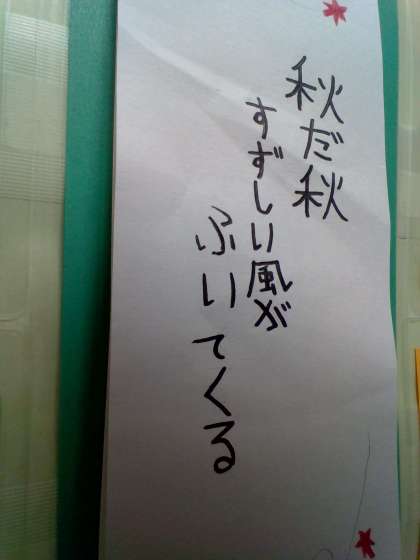 秋だ秋
すずしい風が
ふいてくる